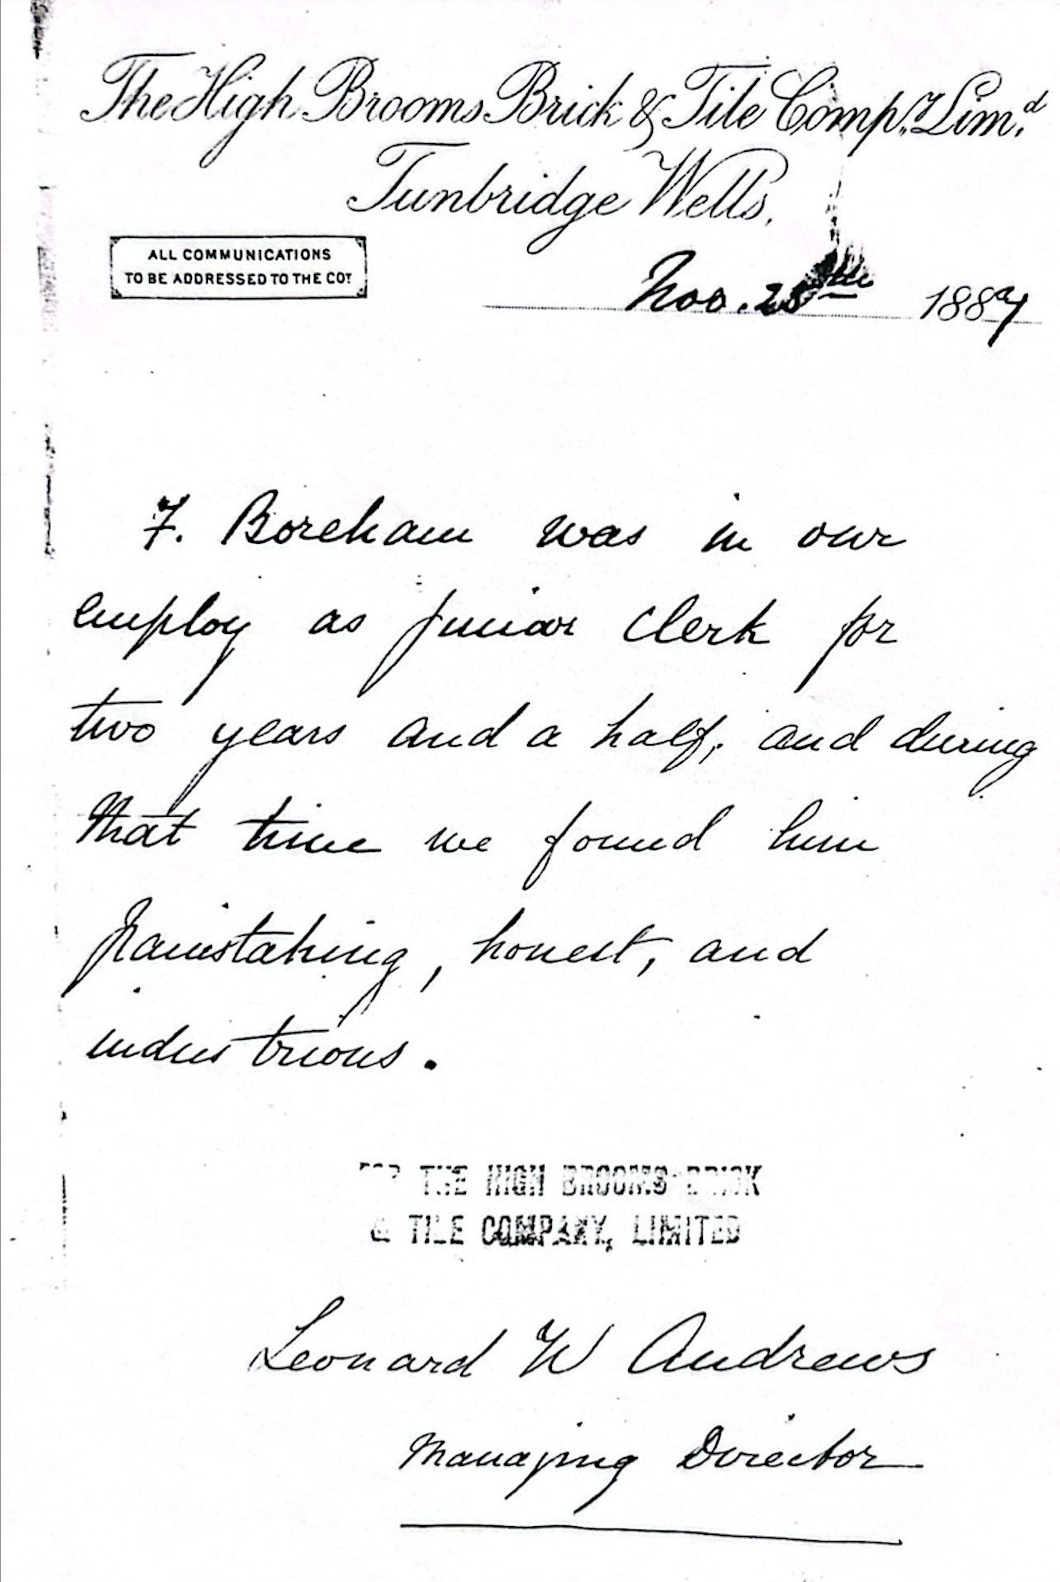 The High Brooms Brick & Tile Comp.y Lim.d
Tunbridge Wells.
ALL COMMUNICATIONS
TO BE ADDRESSED TO THE COY
Nov. 28th 1889
F. Boreham was in our
employ as junior clerk for
two years and a half, and during
that time we found him
painstaking, honest, and
industrious.
FOR THE HIGH BROOMS BRICK
& TILE COMPANY, LIMITED
Leonard W Andrews
Managing Director